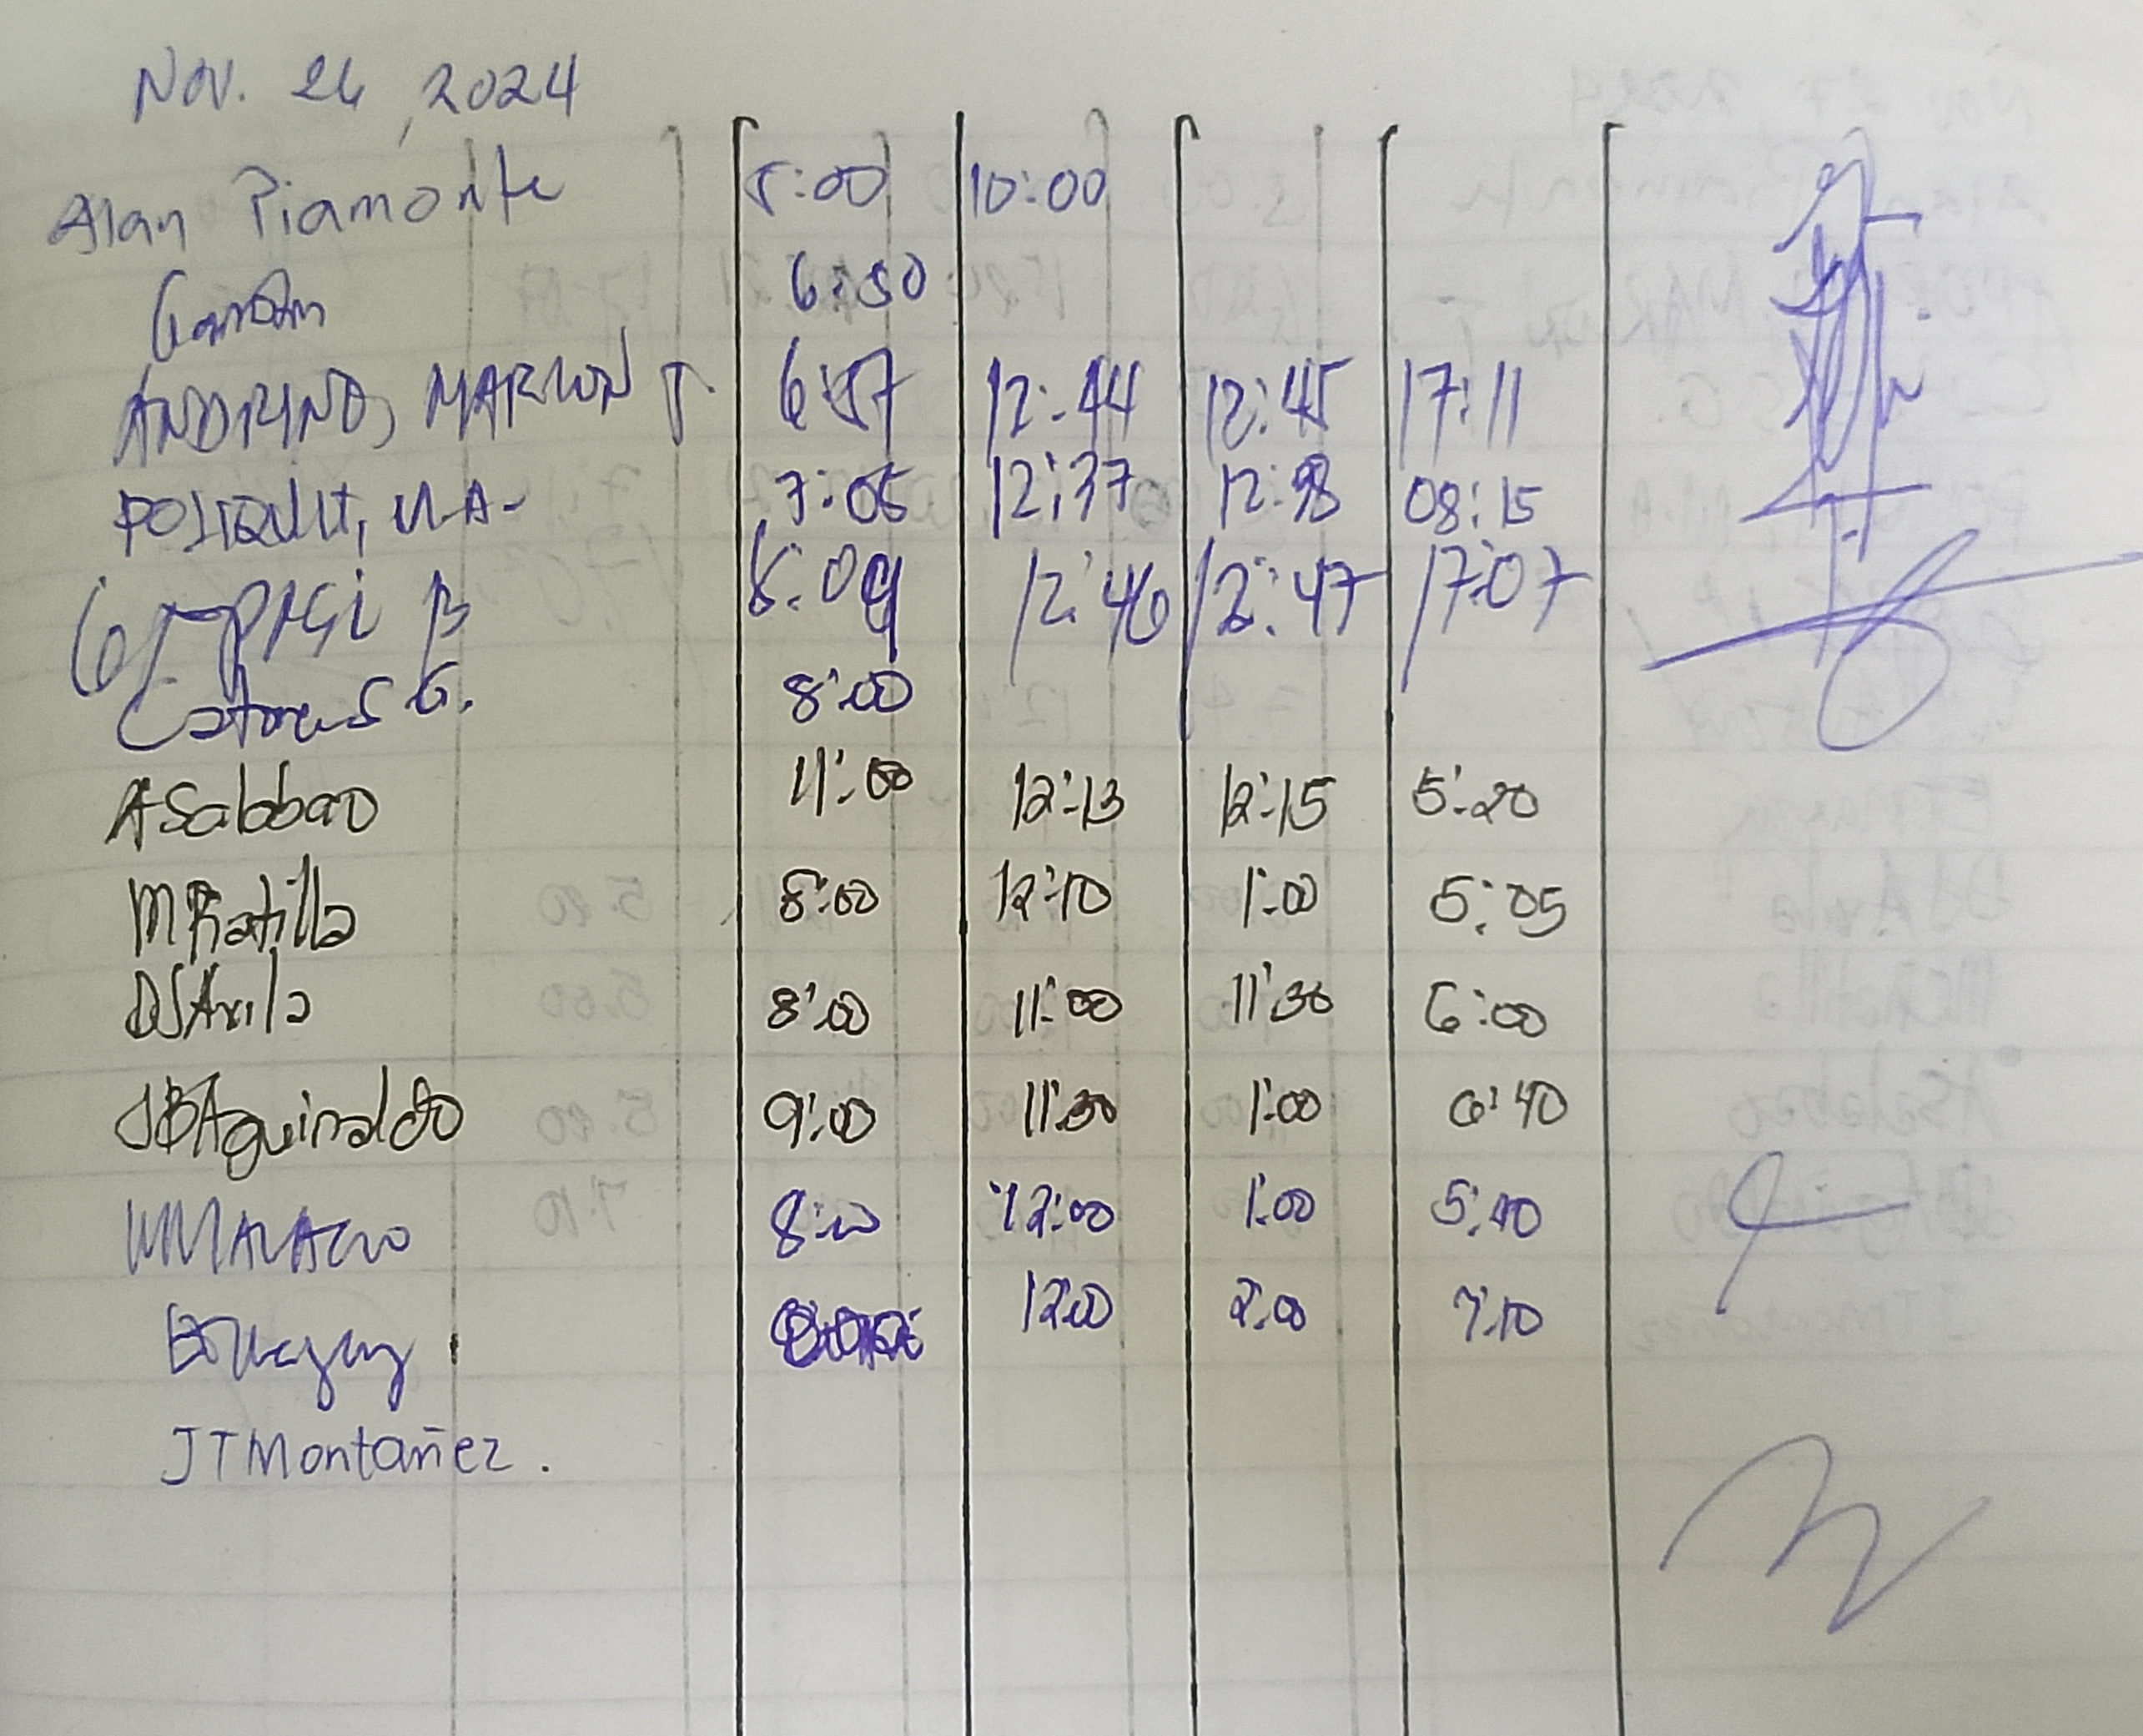 Nov. 26, 2024
Alan Piamonte 8:00 10:00
6:30
ANDRINO, MARLON T. 6:57 12:44 12:45 17:11
POLIQUIT, M.A. 7:05 12:37 12:38 08:15
B 8:09 12:46 12:47 17:07
G. 8:00
ASabbao 11:00 12:13 12:15 5:20
MRatilla 8:00 12:10 1:00 5:05
DSAvila 8:00 11:00 11:30 6:00
JBAguinaldo 9:00 11:30 1:00 6:40
8:00 12:00 1:00 5:40
12:00 2:00 7:10
JTMontañez.